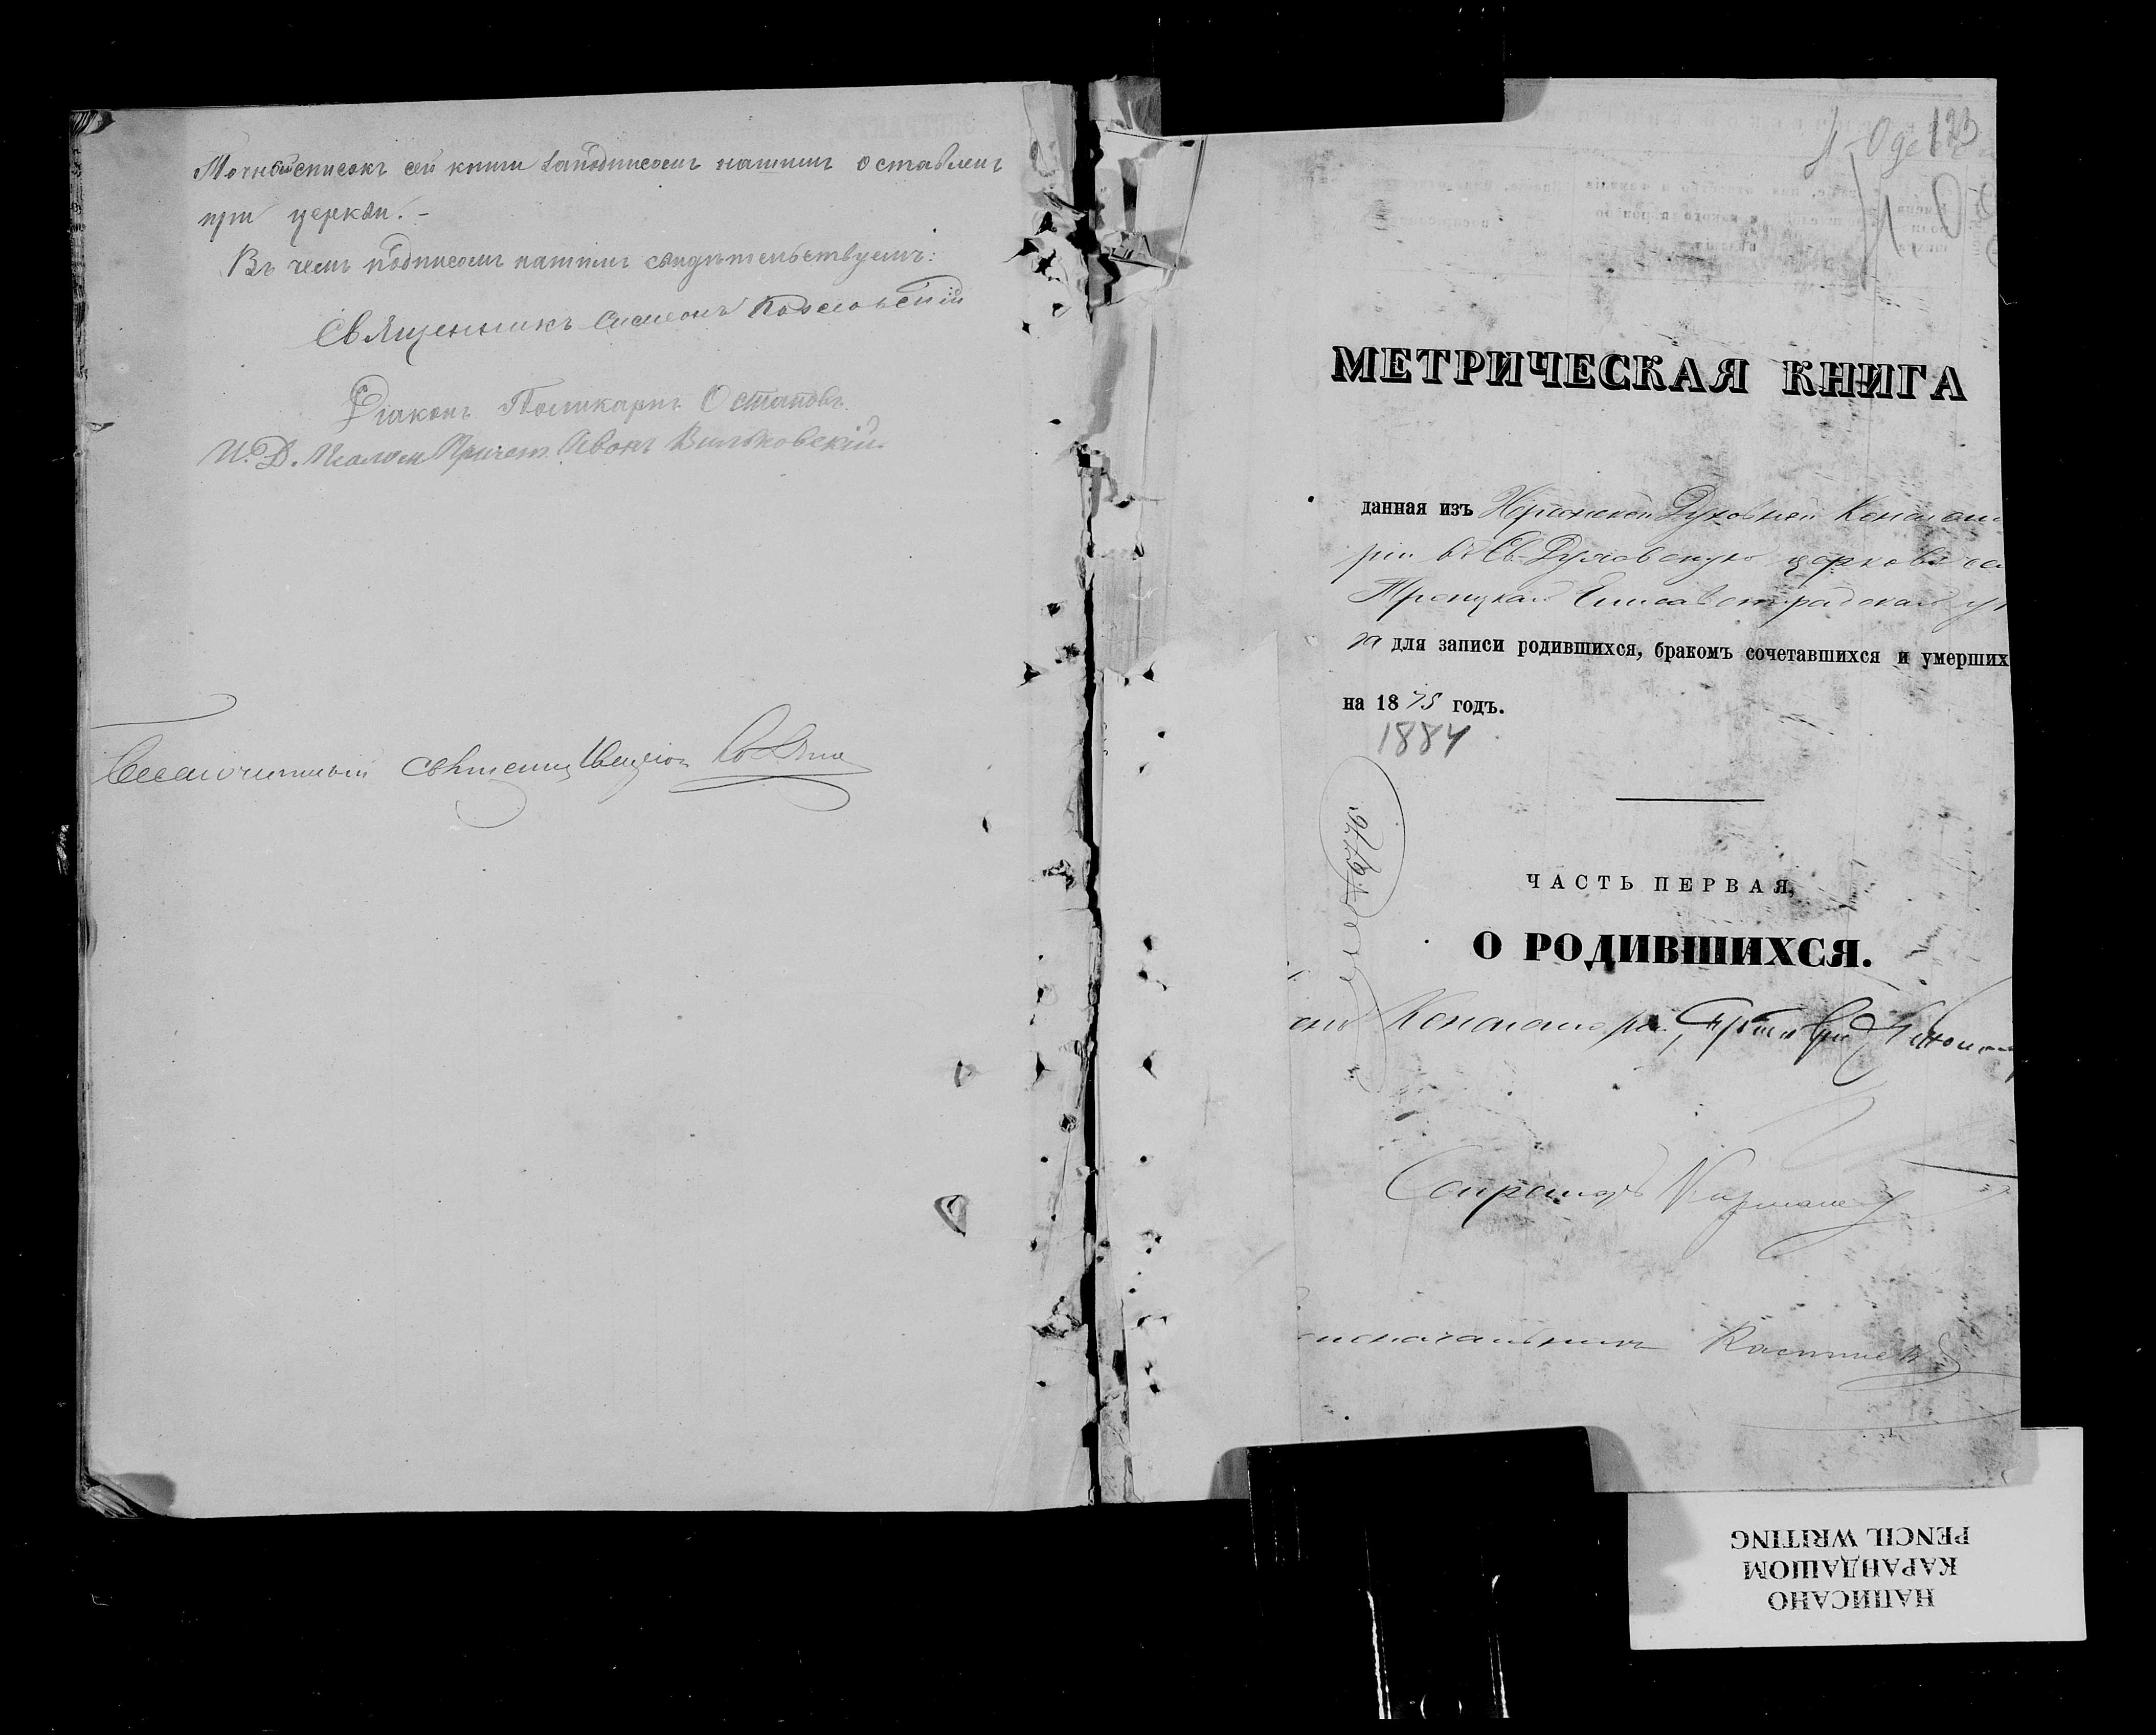 Точный списокъ сей книги за подписомъ нашимъ оставленъ
при церкви. -
Въ чемъ подписомъ нашимъ свидѣтельствуемъ:
Священникъ Симеонъ Козловскій
Діаконъ Поликарпъ Остаповъ
И. Д. Псалом Причет. Иванъ Вильковскій.
Благочинный священникъ
123
МЕТРИЧЕСКАЯ КНИГА
данная изъ Херсонской Духовной Консисто
ріи въ Св. Духовскую церковь се
Троицкаго Елисаветградскаго уѣ
да для записи родившихся, бракомъ сочетавшихся и умерших
на 1875 годъ.
1884
9776
ЧАСТЬ ПЕРВАЯ,
О РОДИВШИХСЯ.
Консисторіи,
Секретарь
Столоначальникъ
НАПИСАНО
КАРАНДАШОМ
PENCIL WRITING